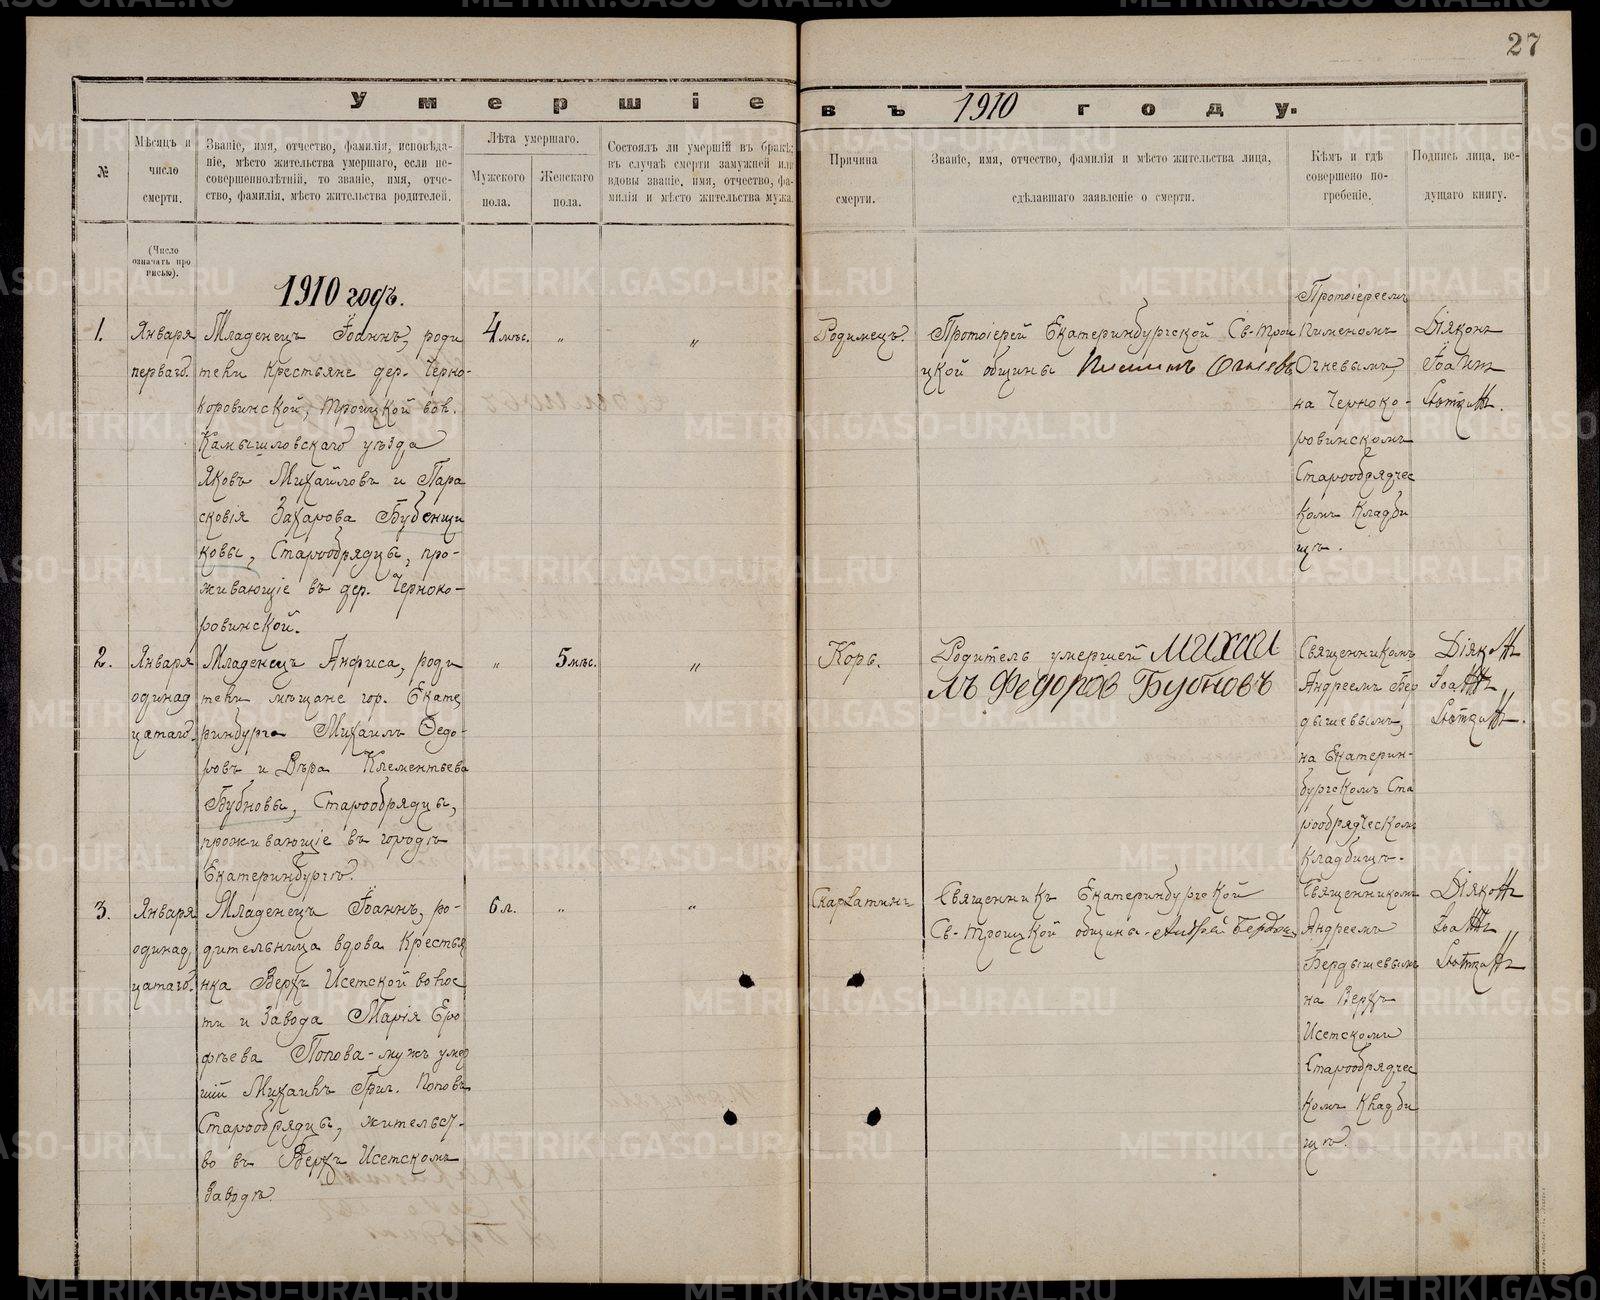 27
Умершіе въ 1910 году.
№
Мѣсяцъ и
число
смерти.
Званіе, имя, отчество, фамилія, исповѣда-
ніе, мѣсто жительства умершаго, если не-
совершеннолѣтній, то званіе, имя, отче-
ство, фамилія, мѣсто жительства родителей.
Лѣта умершаго.
Мужского
пола.
Женскаго
пола.
Состоялъ ли умершій въ бракѣ;
въ случаѣ смерти замужней или
вдовы званіе, имя, отчество, фа-
милія и мѣсто жительства мужа.
Причина
смерти.
Званіе, имя, отчество, фамилія и мѣсто жительства лица,
сдѣлавшаго заявленіе о смерти.
Кѣмъ и гдѣ
совершено по-
гребеніе.
Подпись лица, ве-
дущаго книгу.
(Число
означать про
писью).
1910 годъ.
1.
Января
перваго.
Младенецъ Іоаннъ, роди
тели Крестьяне дер. Черно-
коровинской, Троицкой вол.
Камышловскаго уѣзда
Яковъ Михайловъ и Пара
сковія Захарова Бубенщи
ковы, Старообрядцы, про-
живающіе въ дер. Черноко-
ровинской.
4 мѣс.
"
"
Родимецъ.
Протоіерей Екатеринбургской Св-Трои
цкой общины Пименъ Огневъ
Протоіереемъ
Пименомъ
Огневымъ,
на Черноко-
ровинскомъ
Старообрядчес
комъ Кладби
щѣ.
Діяконъ
Іоаннъ
2.
Января
одинад
цатаго.
Младенецъ Анфиса, роди
тели мѣщане гор. Екате
ринбурга Михаилъ Ѳедо-
ровъ и Вѣра Клементьева
Бубновы, Старообрядцы,
проживающіе въ городѣ
Екатеринбургѣ.
"
5 мѣс.
"
Корь.
Родитель умершей Михаи
лъ Федоров Бубновъ
Священникомъ
Андреемъ Бер
дышевымъ,
на Екатерин-
бургскомъ Ста
рообрядческомъ
Кладбищѣ.
Діяконъ
Іоаннъ
3.
Января
одинад
цатаго.
Младенецъ Іоаннъ, ро-
дительница вдова Крестья
нка Верхъ Исетской волос
ти и Завода Марія Еро
фѣева Попова-мужъ умер
шій Михаилъ Григ. Поповъ
Старообрядцы, жительст-
во въ Верхъ Исетскомъ
Заводѣ.
6 л.
"
"
Скарлатины
Священникъ Екатеринбургской
Св-Троицкой общины-Андрей Бердыш
Священникомъ
Андреемъ
Бердышевымъ
на Верхъ
Исетскомъ
Старообрядчес
комъ Кладби
щѣ.
Діяконъ
Іоаннъ
METRIKI.GASO-URAL.RU